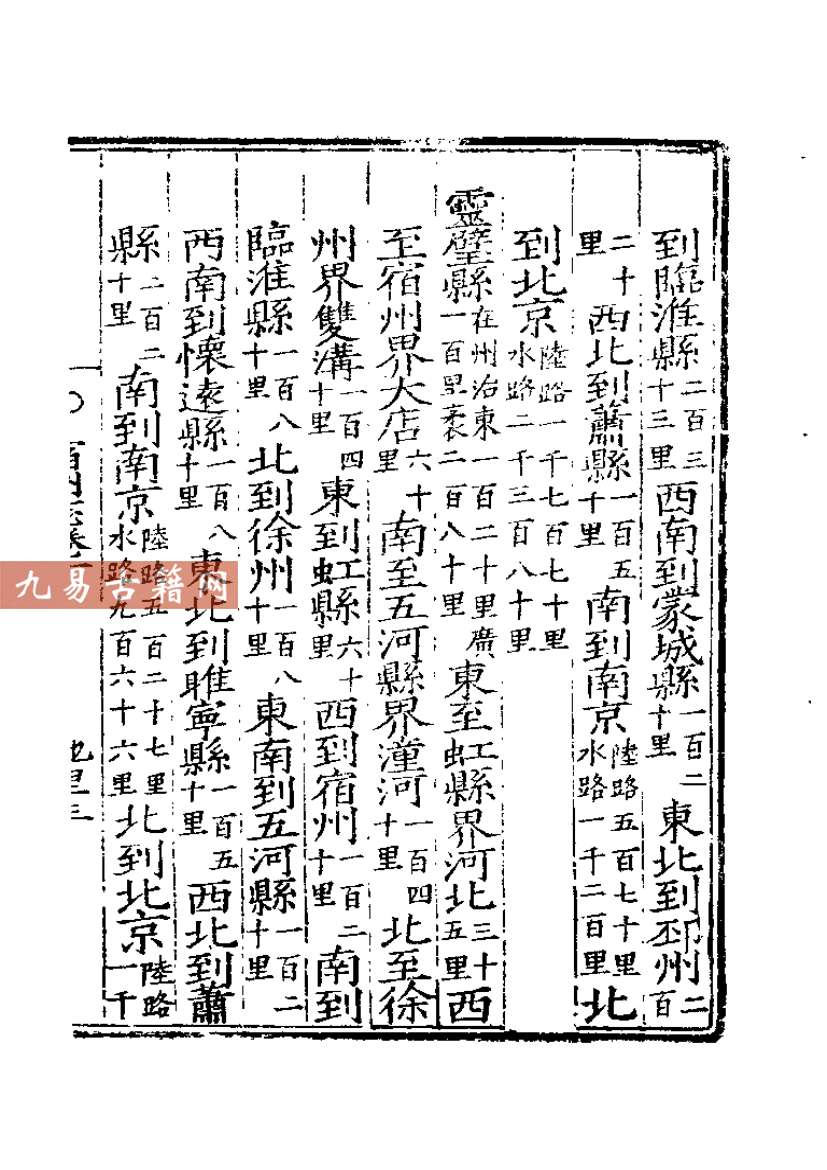 到臨淮縣二百三十三里西南到蒙城縣一百二十里東北到邳州二百
二十里西北到蕭縣一百五十里南到南京陸路五百七十里水路一千二百里北
到北京陸路一千七百七十里水路二千三百八十里
靈璧縣在州治東一百二十里廣一百里袤二百八十里東至虹縣界河北三十五里西
至宿州界大店六十里南至五河縣界潼河一百四十里北至徐
州界雙溝一百四十里東到虹縣六十里西到宿州一百二十里南到
臨淮縣一百八十里北到徐州一百八十里東南到五河縣一百二十里
西南到懷遠縣一百八十里東北到睢寧縣一百五十里西北到蕭
縣二百二十里南到南京陸路五百二十七里水路九百六十六里北到北京陸路一千
宿州志卷
地里三
九易古籍网